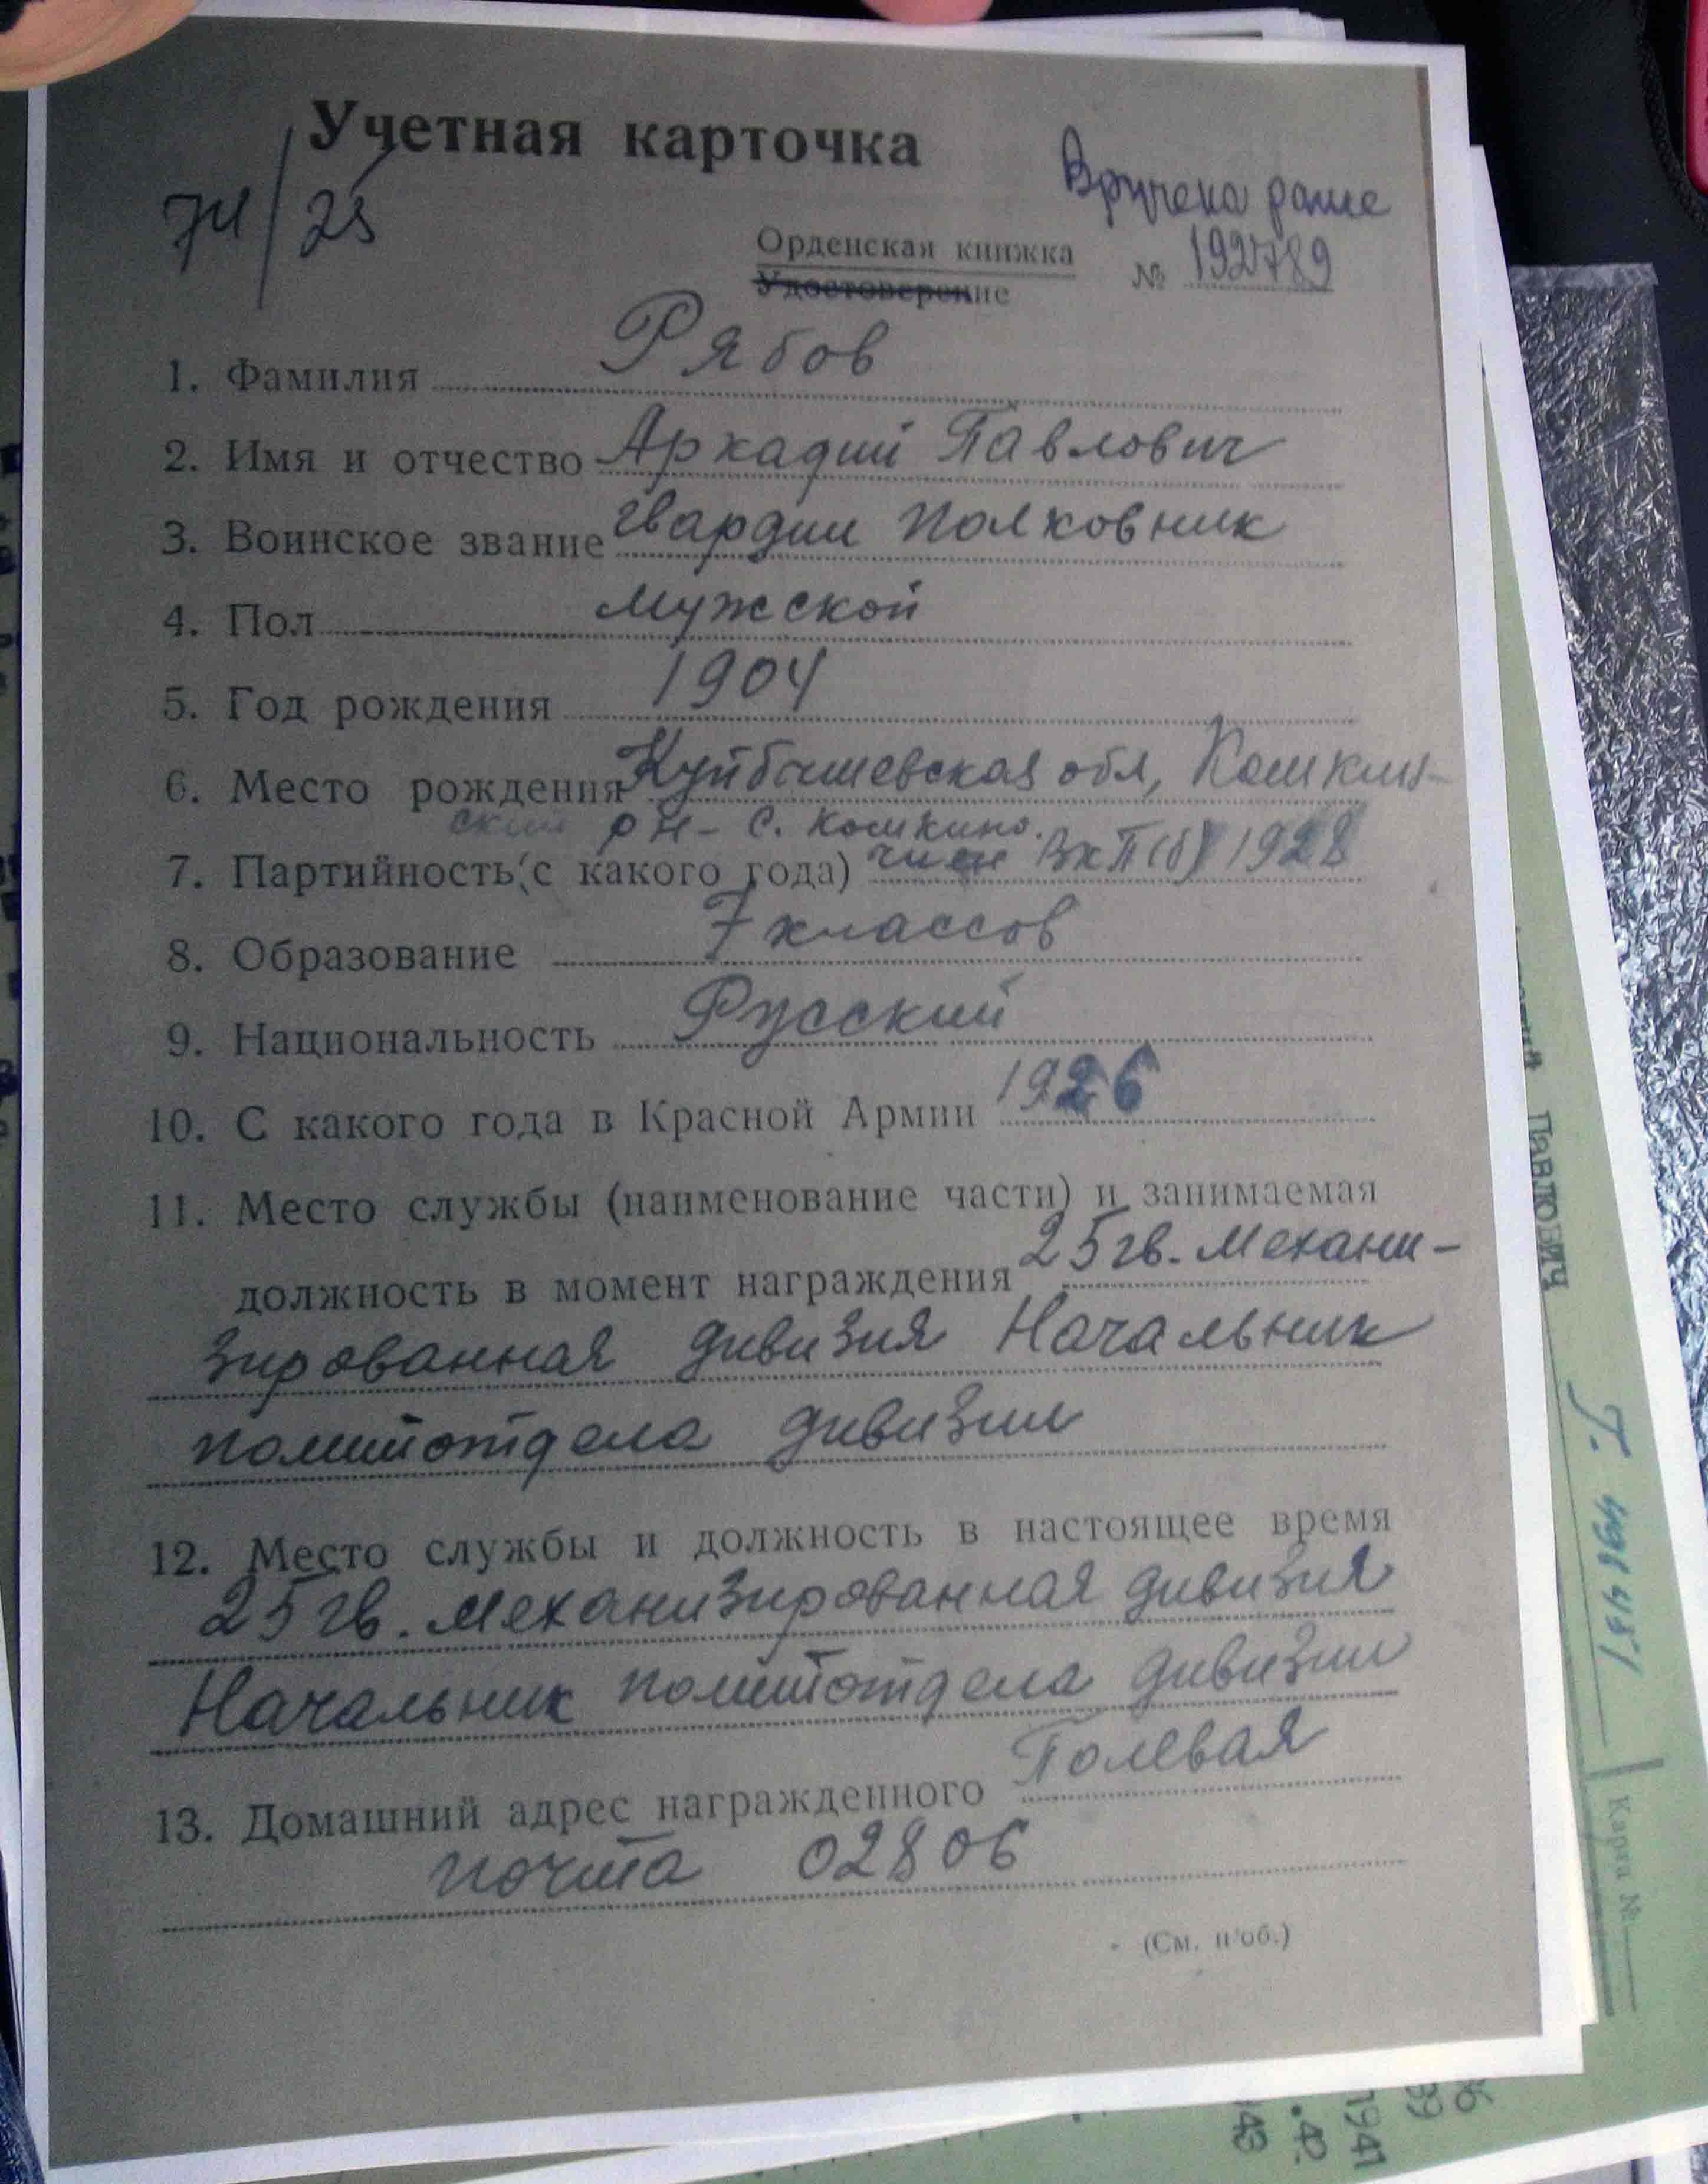 Учетная карточка
74/25
Вручена ранее
Орденская книжка
Удостоверение
№ 192789
1. Фамилия Рябов
2. Имя и отчество Аркадий Павлович
3. Воинское звание гвардии полковник
4. Пол мужской
5. Год рождения 1904
6. Место рождения Куйбышевская обл, Кошкин-
ский р-н- с. Кошкино.
7. Партийность (с какого года) член ВКП(б) 1928
8. Образование 7 классов
9. Национальность Русский
10. С какого года в Красной Армии 1926
11. Место службы (наименование части) и занимаемая
должность в момент награждения 25 гв. механи-
зированная дивизия Начальник
политотдела дивизии
12. Место службы и должность в настоящее время
25 гв. механизированная дивизия
Начальник политотдела дивизии
13. Домашний адрес награжденного Полевая
почта 02806
(См. н/об.)
Павлович
Карта №
1941